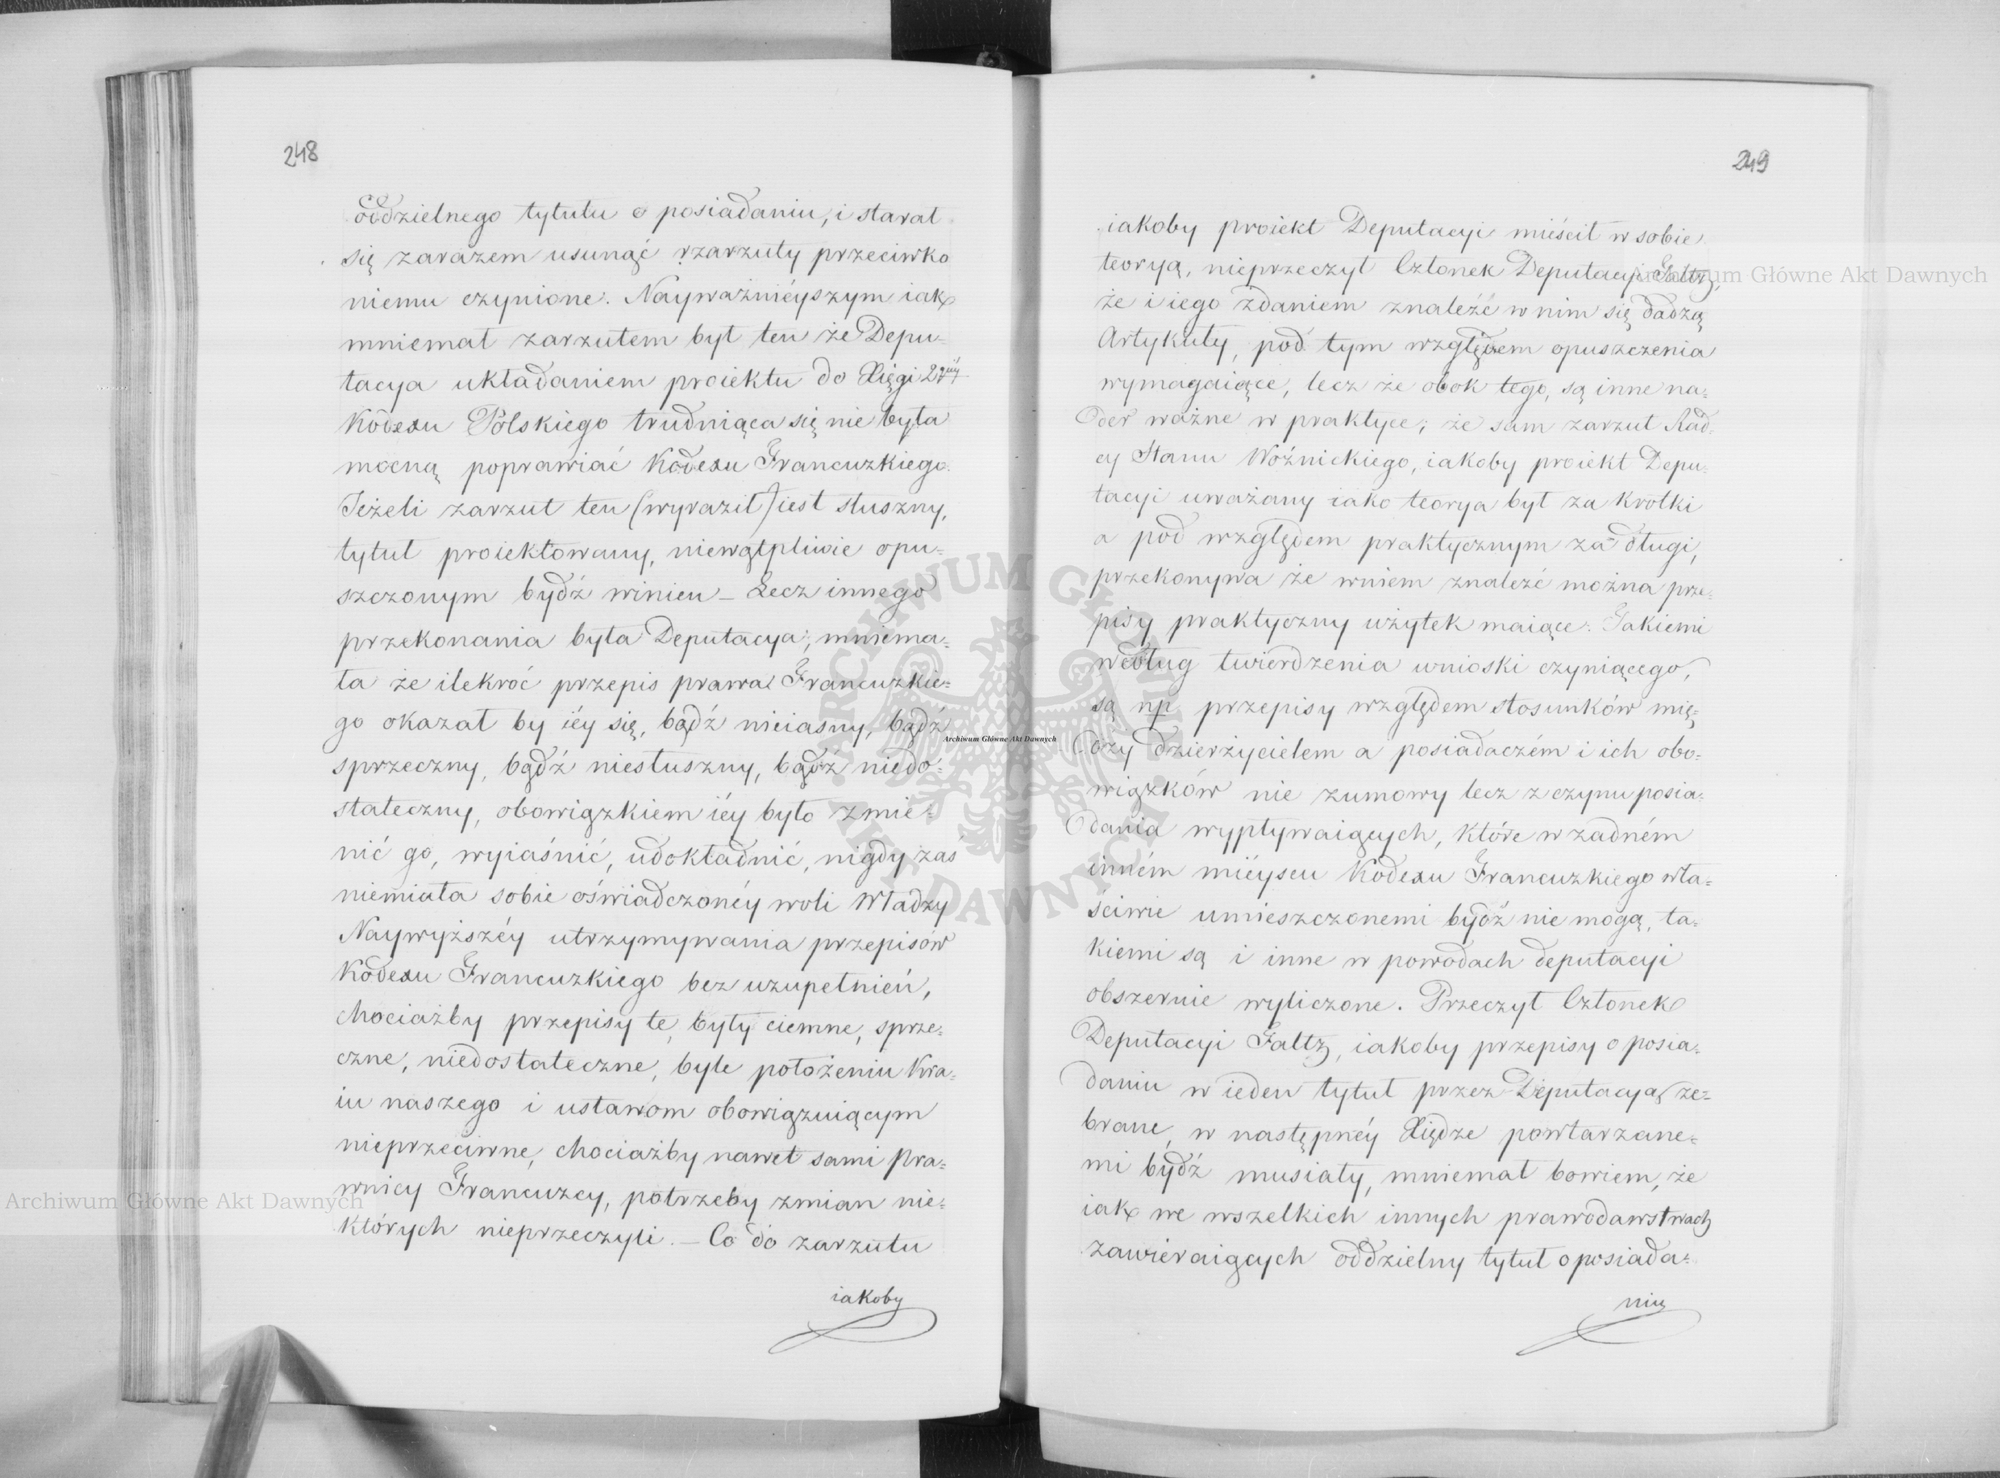 248
oddzielnego tytułu o posiadaniu, i starał
się zarazem usunąć rzarzuty przeciwko
niemu czynione. Nayważniéyszym iak
mniemał zarzutem był ten że Depu-
tacya układaniem proiektu do Xięgi 2giéy
Kodexu Polskiego trudniąca się nie była
mocną poprawiać Kodexu Francuzkiego.
Jeżeli zarzut ten (wyraził) iest słuszny,
tytuł proiektowany, niewątpliwie opu-
szczonym bydź winien – Lecz innego
przekonania była Deputacya; mniema-
ła że ilekroć przepis prawa Francuzkie-
go okazał by iéy się, bądź nieiasny, bądź
sprzeczny, bądź niesłuszny, bądź niedo-
stateczny, obowiązkiem iéy było zmie-
nić go, wyiaśnić, udokładnić, nigdy zaś
niemiała sobie oświadczonéy woli Władzy
Naywyższéy utrzymywania przepisów
Kodexu Francuzkiego bez uzupełnień,
chociażby przepisy te, były ciemne, sprze-
czne, niedostateczne, byle położeniu Kra-
iu naszego i ustawom obowiązuiącym
nieprzeciwne, chociażby nawet sami Pra-
wnicy Francuzcy, potrzeby zmian nie-
których nieprzeczyli. – Co do zarzutu
iakoby
249
iakoby proiekt Deputacyi mieścił w sobie
teoryą, nieprzeczył Członek Deputacyi Faltz,
że i iego zdaniem znaleźć w nim się dadzą
Artykuły, pod tym względem opuszczenia
wymagaiące, lecz że obok tego, są inne na-
der ważne w praktyce; że sam zarzut Rad-
cy Stanu Woźnickiego, iakoby proiekt Depu-
tacyi uważany iako teorya był za krotki
a pod względem praktycznym za długi,
przekonywa że wniem znaleźć można prze-
pisy praktyczny użytek maiące. Jakiemi
według twierdzenia wnioski czyniącego,
są np. przepisy względem stosunków mię-
dzy dzierżycielem a posiadaczém i ich obo-
wiązków nie zumowy lecz z czynu posia-
dania wypływaiących, które w żadném
inném mieyscu Kodexu Francuzkiego wła-
ściwie umieszczonemi bydź nie mogą, ta-
kiemi są i inne w powodach deputacyi
obszernie wyliczone. Przeczył Członek
Deputacyi Faltz, iakoby przepisy o posia-
daniu w ieden tytuł przez Deputacyą ze-
brane, w następnéy Xiędze powtarzane-
mi bydź musiały, mniemał bowiem, że
iak we wszelkich innych prawodawstwach
zawieraiących oddzielny tytuł o posiada-
niu
Archiwum Główne Akt Dawnych
Archiwum Główne Akt Dawnych
Archiwum Główne Akt Dawnych
ARCHIWUM GŁÓWNE AKT DAWNYCH